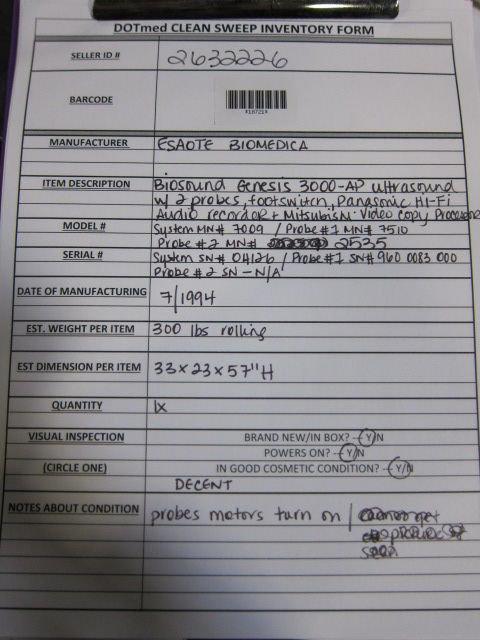 DOTmed CLEAN SWEEP INVENTORY FORM
SELLER ID # 2632226
BARCODE
MANUFACTURER ESAOTE BIOMEDICA
ITEM DESCRIPTION Biosound Genesis 3000-AP ultrasound
w/ 2 probes, footswitch, Panasonic HI-Fi
Audio recorder + Mitsubishi Video Copy Processor
MODEL # System MN# 7009 / Probe #1 MN# 7510
Probe #2 MN# 2535
SERIAL # System SN# 04126 / Probe #1 SN# 960 0083 000
Probe #2 SN - N/A
DATE OF MANUFACTURING 7/1994
EST. WEIGHT PER ITEM 300 lbs rolling
EST DIMENSION PER ITEM 33x23x57"H
QUANTITY 1x
VISUAL INSPECTION BRAND NEW/IN BOX? - Y/N
POWERS ON? - Y/N
(CIRCLE ONE) IN GOOD COSMETIC CONDITION? - Y/N
DECENT
NOTES ABOUT CONDITION probes motors turn on /